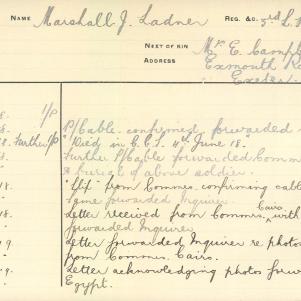 NAME Marshall. J. Ladner REG. &c. 3rd L.H
NEXT OF KIN Mr. E. Campb
ADDRESS Exmouth Ro
Exeter
8. I/P P/Cable. confirmed forwarded
8. "Died in C.C.S. 4th June 18."
8. Further I/P Further P/Cable forwarded Comm
& burial of above soldier.
18. from Commrs. confirming cable
same forwarded Inquirer.
18. Letter received from Commrs. Cairo, with
forwarded Inquirer
9. Letter forwarded Inquirer re photos
from Commrs. Cairo.
9. Letter acknowledging photos forw
Egypt.